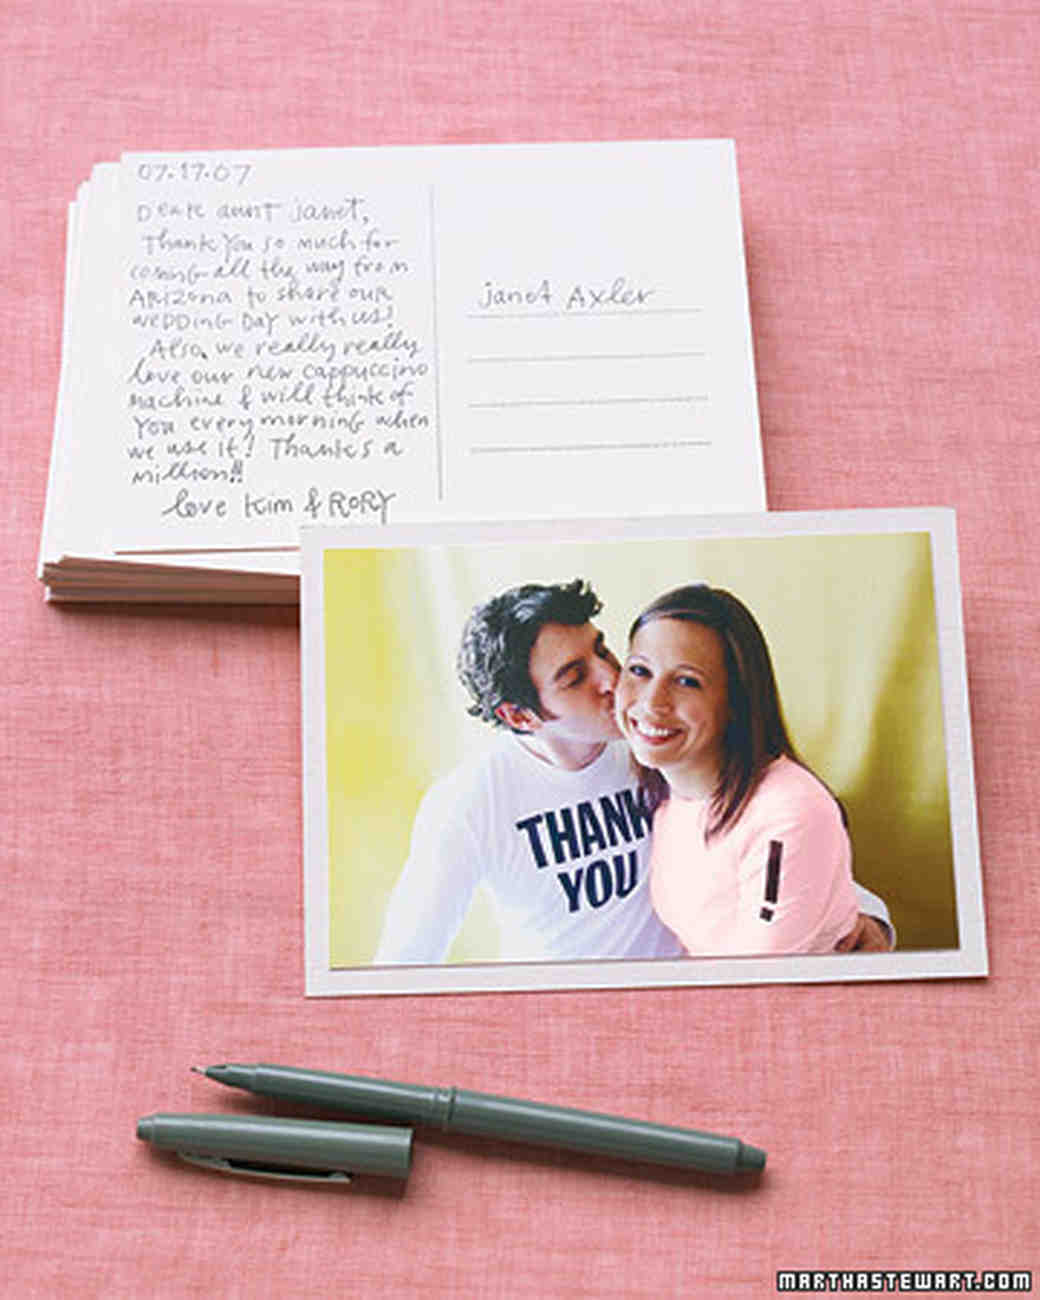 07.17.07
Dear aunt janet,
Thank you so much for
coming all the way from
ARIZona to share our
WEDDING DAY with us!
Also, we really really
love our new cappuccino
machine & will think of
You every morning when
we use it! Thanks a
million!!
love Kim & RORY
janet Axler
THANK
YOU
!
MARTHASTEWART.COM